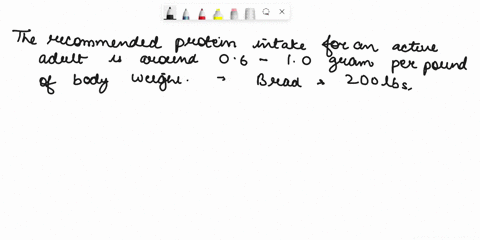 The recommended protein intake for an active
adult is around 0.6 - 1.0 gram per pound
of body weight. → Brad → 200 lbs.